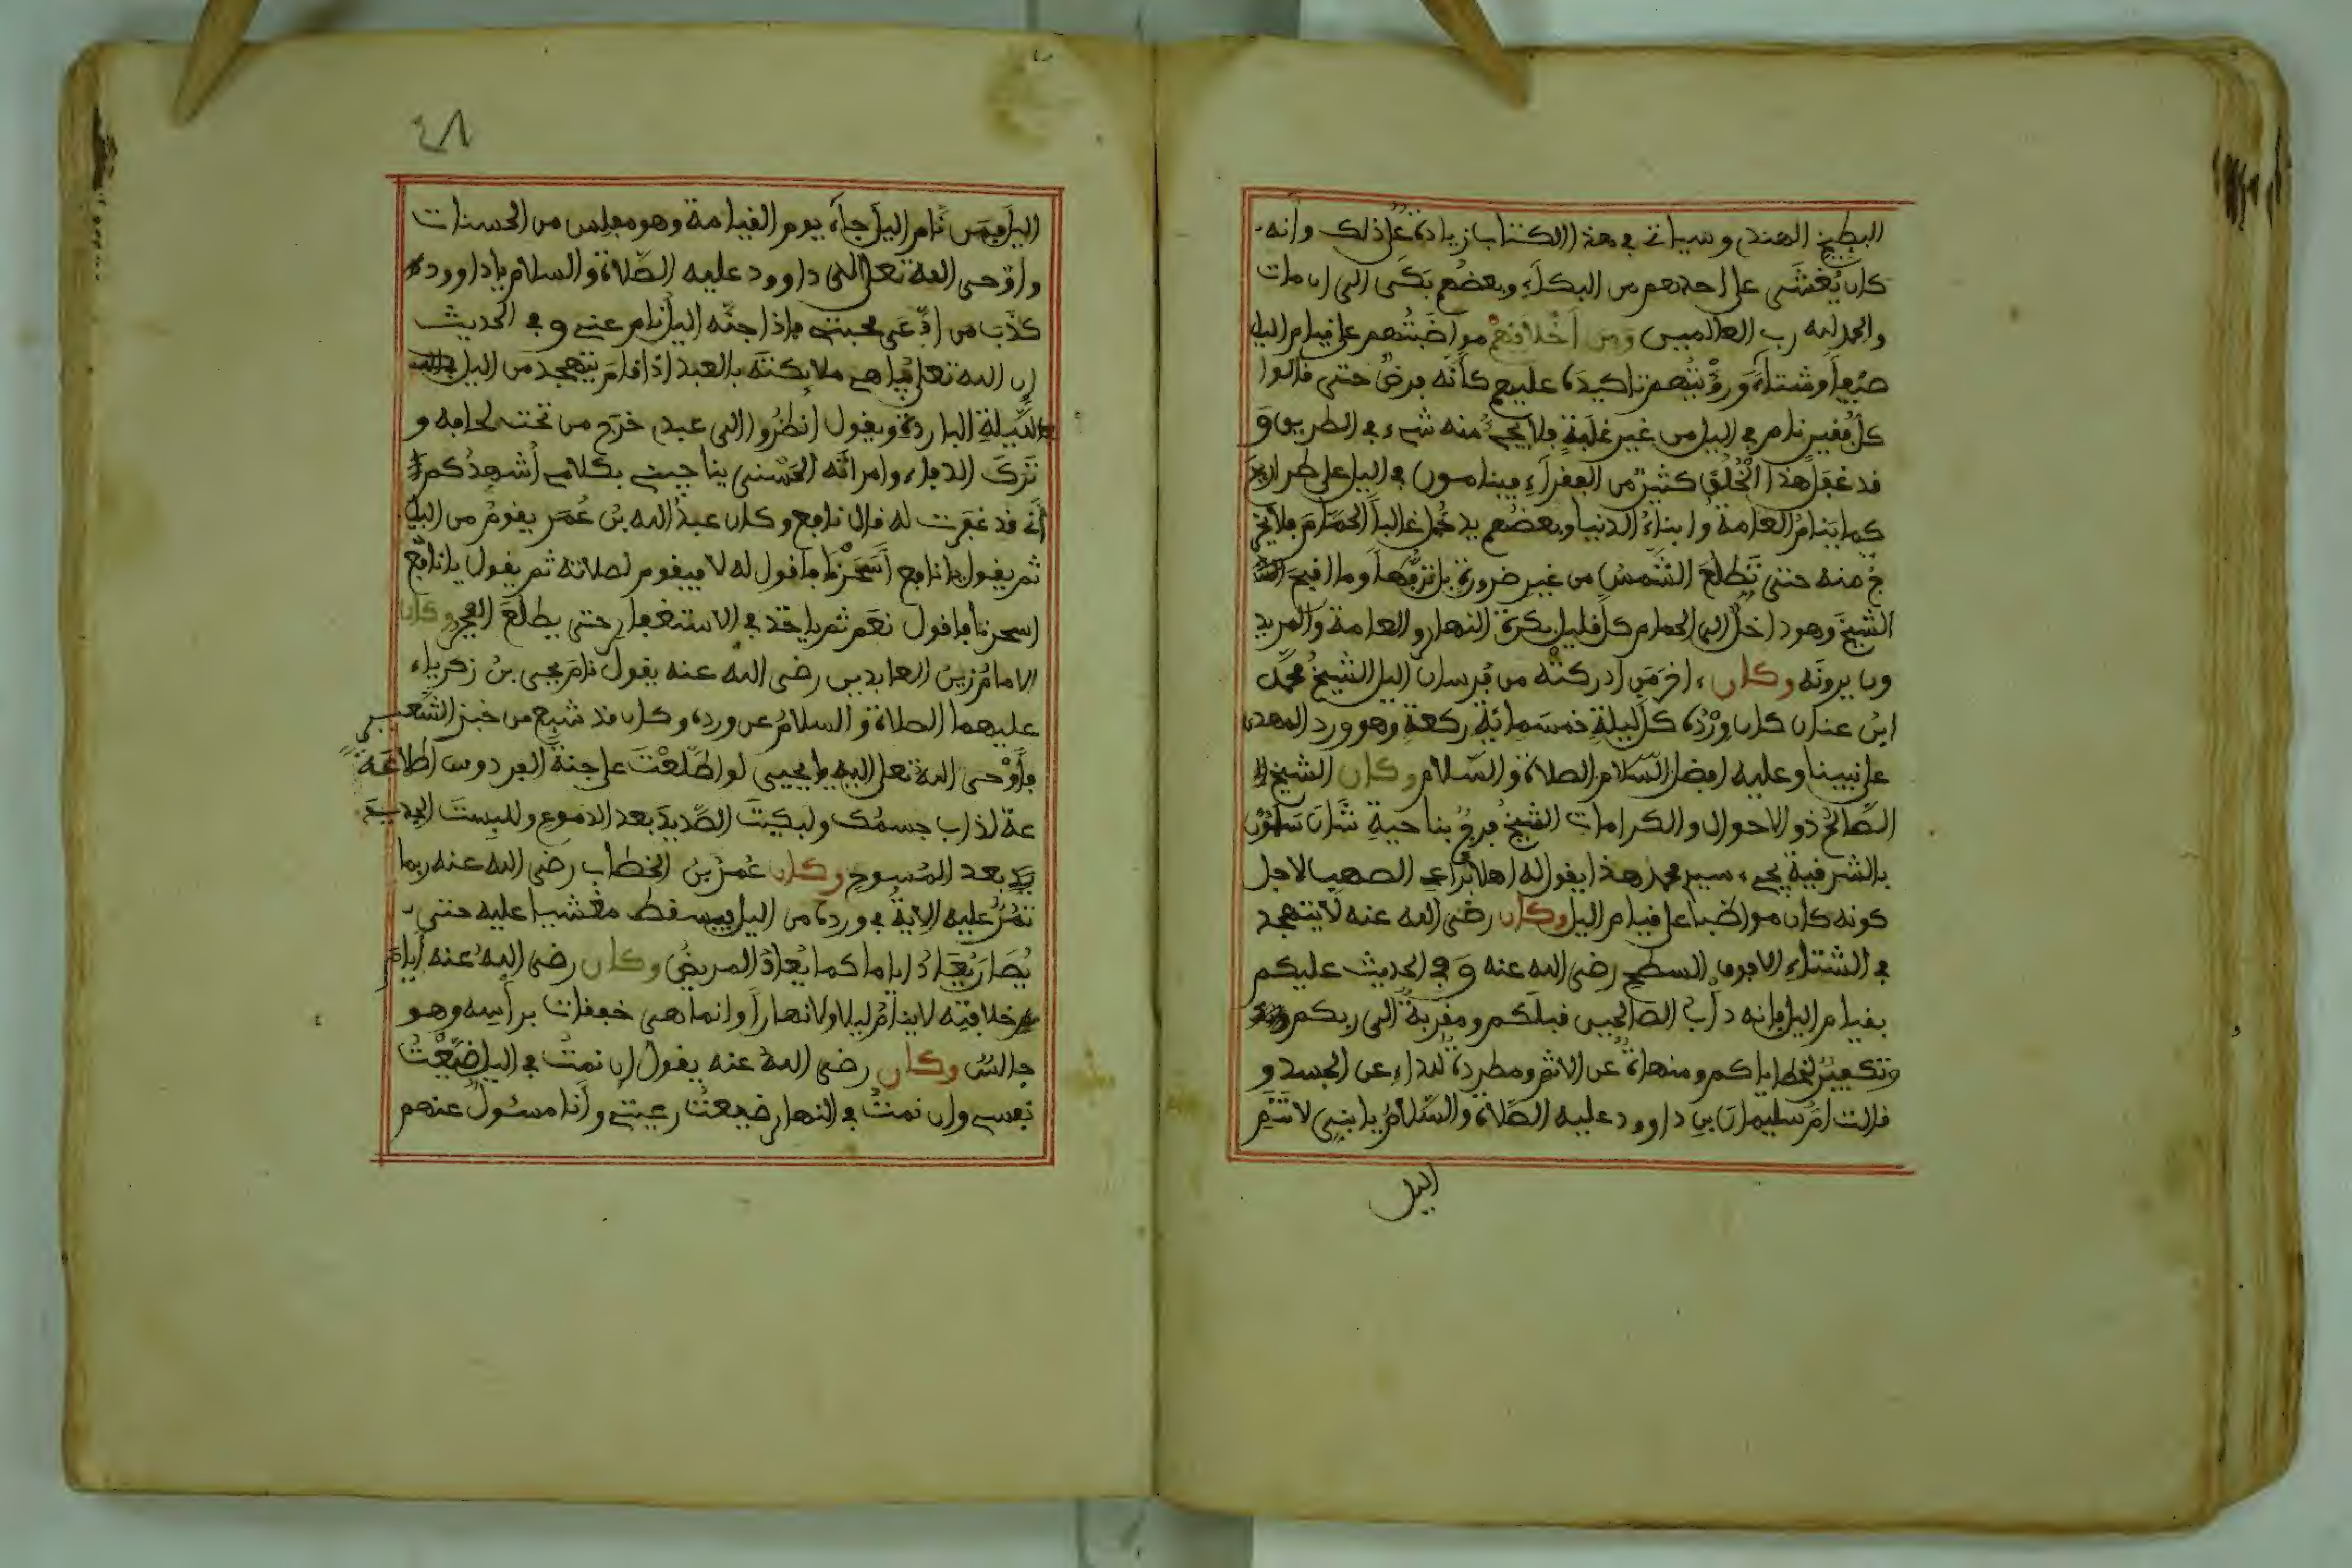 البطيخ الهندي وسياتي في هذا الكتاب زيادة على ذلك وانه
كان يُغشَى على احدهم من البكاء وبعضهم بَكَى الى ان مات
والحمد لله رب العالمين ومن أخلاقهم مواضبتهم على قيام اليل
صيفا وشتاءً ورؤيتهم تاكيده عليهم كأنه فرض حتى قالوا
كل فقير نام في اليل من غير غلبةٍ فلا يجيء منه شيء في الطريق و
قد غفل هذا الخُلُق كثيرٌ من الفقراء فينامون في اليل على طراريح
كما ينامُ العامة وابناءُ الدنيا وبعضهم يدخل غالباً الحمّام فلا يخر
جُ منه حتى تطلعَ الشمسُ من غير ضرورة بل ترفُّهاً وما اقبح
الشيخ وهو داخل الى الحمام كل قليل بكرة النهار والعامة والمريد
ون يرونه وكان اخر من ادركته من فرسان اليل الشيخُ محمد
ابن عنان كان وِرْدُه كل ليلة خمسمائة ركعة وهو ورد المهدي
على نبينا وعليه افضل السلام الصلاة والسلام وكان الشيخ
الصالحُ ذو الاحوال والكرامات الشيخُ فرجُ بناحية شان سلمون
بالشرقية يجيء سيدي محمد هذا يقول له اهلا براعي الصهب لاجل
كونه كان مواضبا على قيام اليل وكان رضي الله عنه لا يتهجد
في الشتاء الا فوق السطح رضي الله عنه وفي الحديث عليكم
بقيام اليل فإنه دأبُ الصالحين قبلكم ومقربةٌ الى ربكم
وتكفيرٌ لخطاياكم ومنهاةٌ عن الاثم ومطردةٌ للداء عن الجسد و
قالت امُّ سليمان بن داوود عليه الصلاة والسلامُ يا بني لا تنم
اليل
٤٨
اليل فمن نام اليل جاء يوم القيامة وهو مفلس من الحسنات
واوحى الله تعلى الى داوود عليه الصلاة والسلام يا داوود
كذَب من ادّعى محبتي فإذا جنّه اليل نام عني وفي الحديث
إن الله تعلى يباهي ملائكته بالعبد اذا قام يتهجد من اليل
الليلة الباردة ويقول انظروا الى عبدي خرج من تحت لحافه و
تركَ الدفاء وامرأته الحسنى يناجيني بكلامي أُشهدُكم
أني قد غفرت له قال نافع وكان عبدُ الله بنُ عُمَر يقومُ من اليل
ثم يقول يا نافع أسْحَرْنا فاقول له لا فيقوم لصلاته ثم يقول يا نافع
اسحرنا فاقول نعم ثم ياخذ في الاستغفار حتى يطلعَ الفجر وكان
الامامُ زينُ العابدين رضي الله عنه يقول نام يحيى بنُ زكرياء
عليهما الصلاة والسلامُ عن ورده وكان قد شبع من خبز الشعير
فأَوْحى الله تعلى اليه يا يحيى لو اطّلعْتَ على جنة الفردوس اطّلا عةً
عة لذاب جسمُك ولبكيتَ الصَّديدَ بعد الدموع وللبِستَ الحديد
يدَ بعد المُسوح وكان عُمرُ بنُ الخطاب رضي الله عنه ربما
تمُرُّ عليه الايةُ في ورده من اليل فيسقط مغشيا عليه حتى
يُصَارَ يُعَادُ اياما كما يُعادُ المريضُ وكان رضي الله عنه أيامَ
خلافته لا ينامُ ليلا ولا نهاراً وانما هي خفقات برأسه وهو
جالسٌ وكان رضي الله عنه يقول إن نمتُ في اليل ضيّعْتُ
نفسي وإن نمتُ في النهار ضيعتُ رعيتي وأنا مسئولٌ عنهم